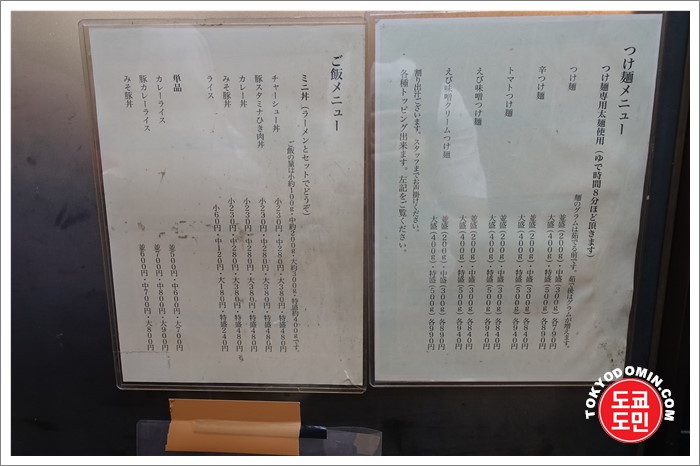 つけ麺メニュー
つけ麺専用太麺使用(ゆで時間8分ほど頂きます)
麺のグラムは茹でる前です。茹で後はグラムが増えます。
つけ麺 並盛(200g)・中盛(300g)各790円
大盛(400g)・特盛(500g)各890円
辛つけ麺 並盛(200g)・中盛(300g)各840円
大盛(400g)・特盛(500g)各940円
トマトつけ麺 並盛(200g)・中盛(300g)各840円
大盛(400g)・特盛(500g)各940円
えび味噌つけ麺 並盛(200g)・中盛(300g)各840円
大盛(400g)・特盛(500g)各940円
えび味噌クリームつけ麺 並盛(200g)・中盛(300g)各890円
大盛(400g)・特盛(500g)各990円
割り出汁ございます。スタッフまでお声掛けください。
・各種トッピング出来ます。左記をご覧ください。
ご飯メニュー
ミニ丼(ラーメンとセットでどうぞ)
ご飯の量は小約100g・中約200g・大約300g・特盛約400gです。
チャーシュー丼 小230円・中280円・大380円・特盛480円
豚スタミナひき肉丼 小230円・中280円・大380円・特盛480円
カレー丼 小230円・中280円・大380円・特盛480円
みそ豚丼 小230円・中280円・大380円・特盛480円
ライス 小60円・中120円・大180円・特盛240円
単品
カレーライス 並500円・中600円・大700円
豚カレーライス 並700円・中800円・大900円
みそ豚丼 並600円・中700円・大800円
TOKYODOMIN.COM
도쿄
도민